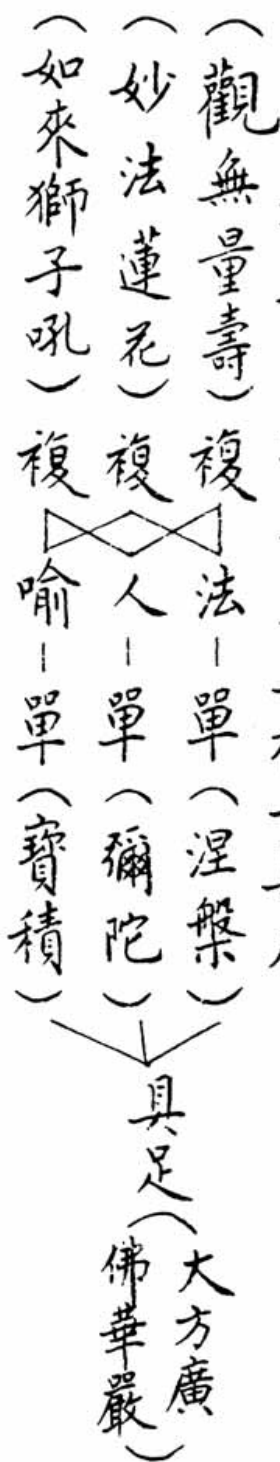 （觀無量壽）複 法－單（涅槃）
（妙法蓮花）複 人－單（彌陀）
（如來獅子吼）複 喻－單（寶積）
具足（大方廣
佛華嚴）